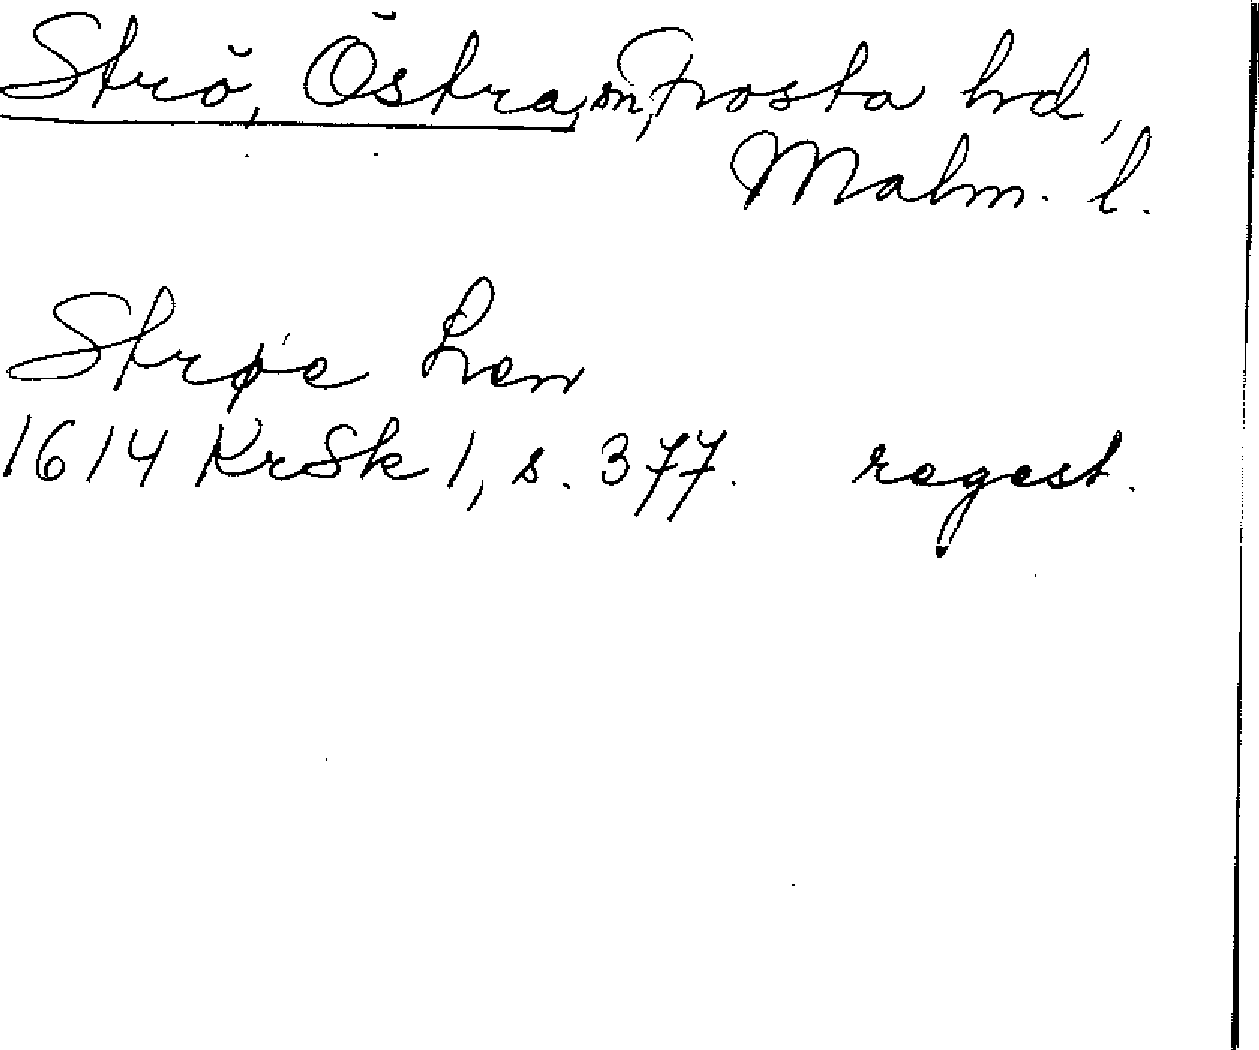 Strö, Östra, sn, Frosta hd,
Malm. l.
Strøe Len
1614 KrSk 1, s. 377. regest.